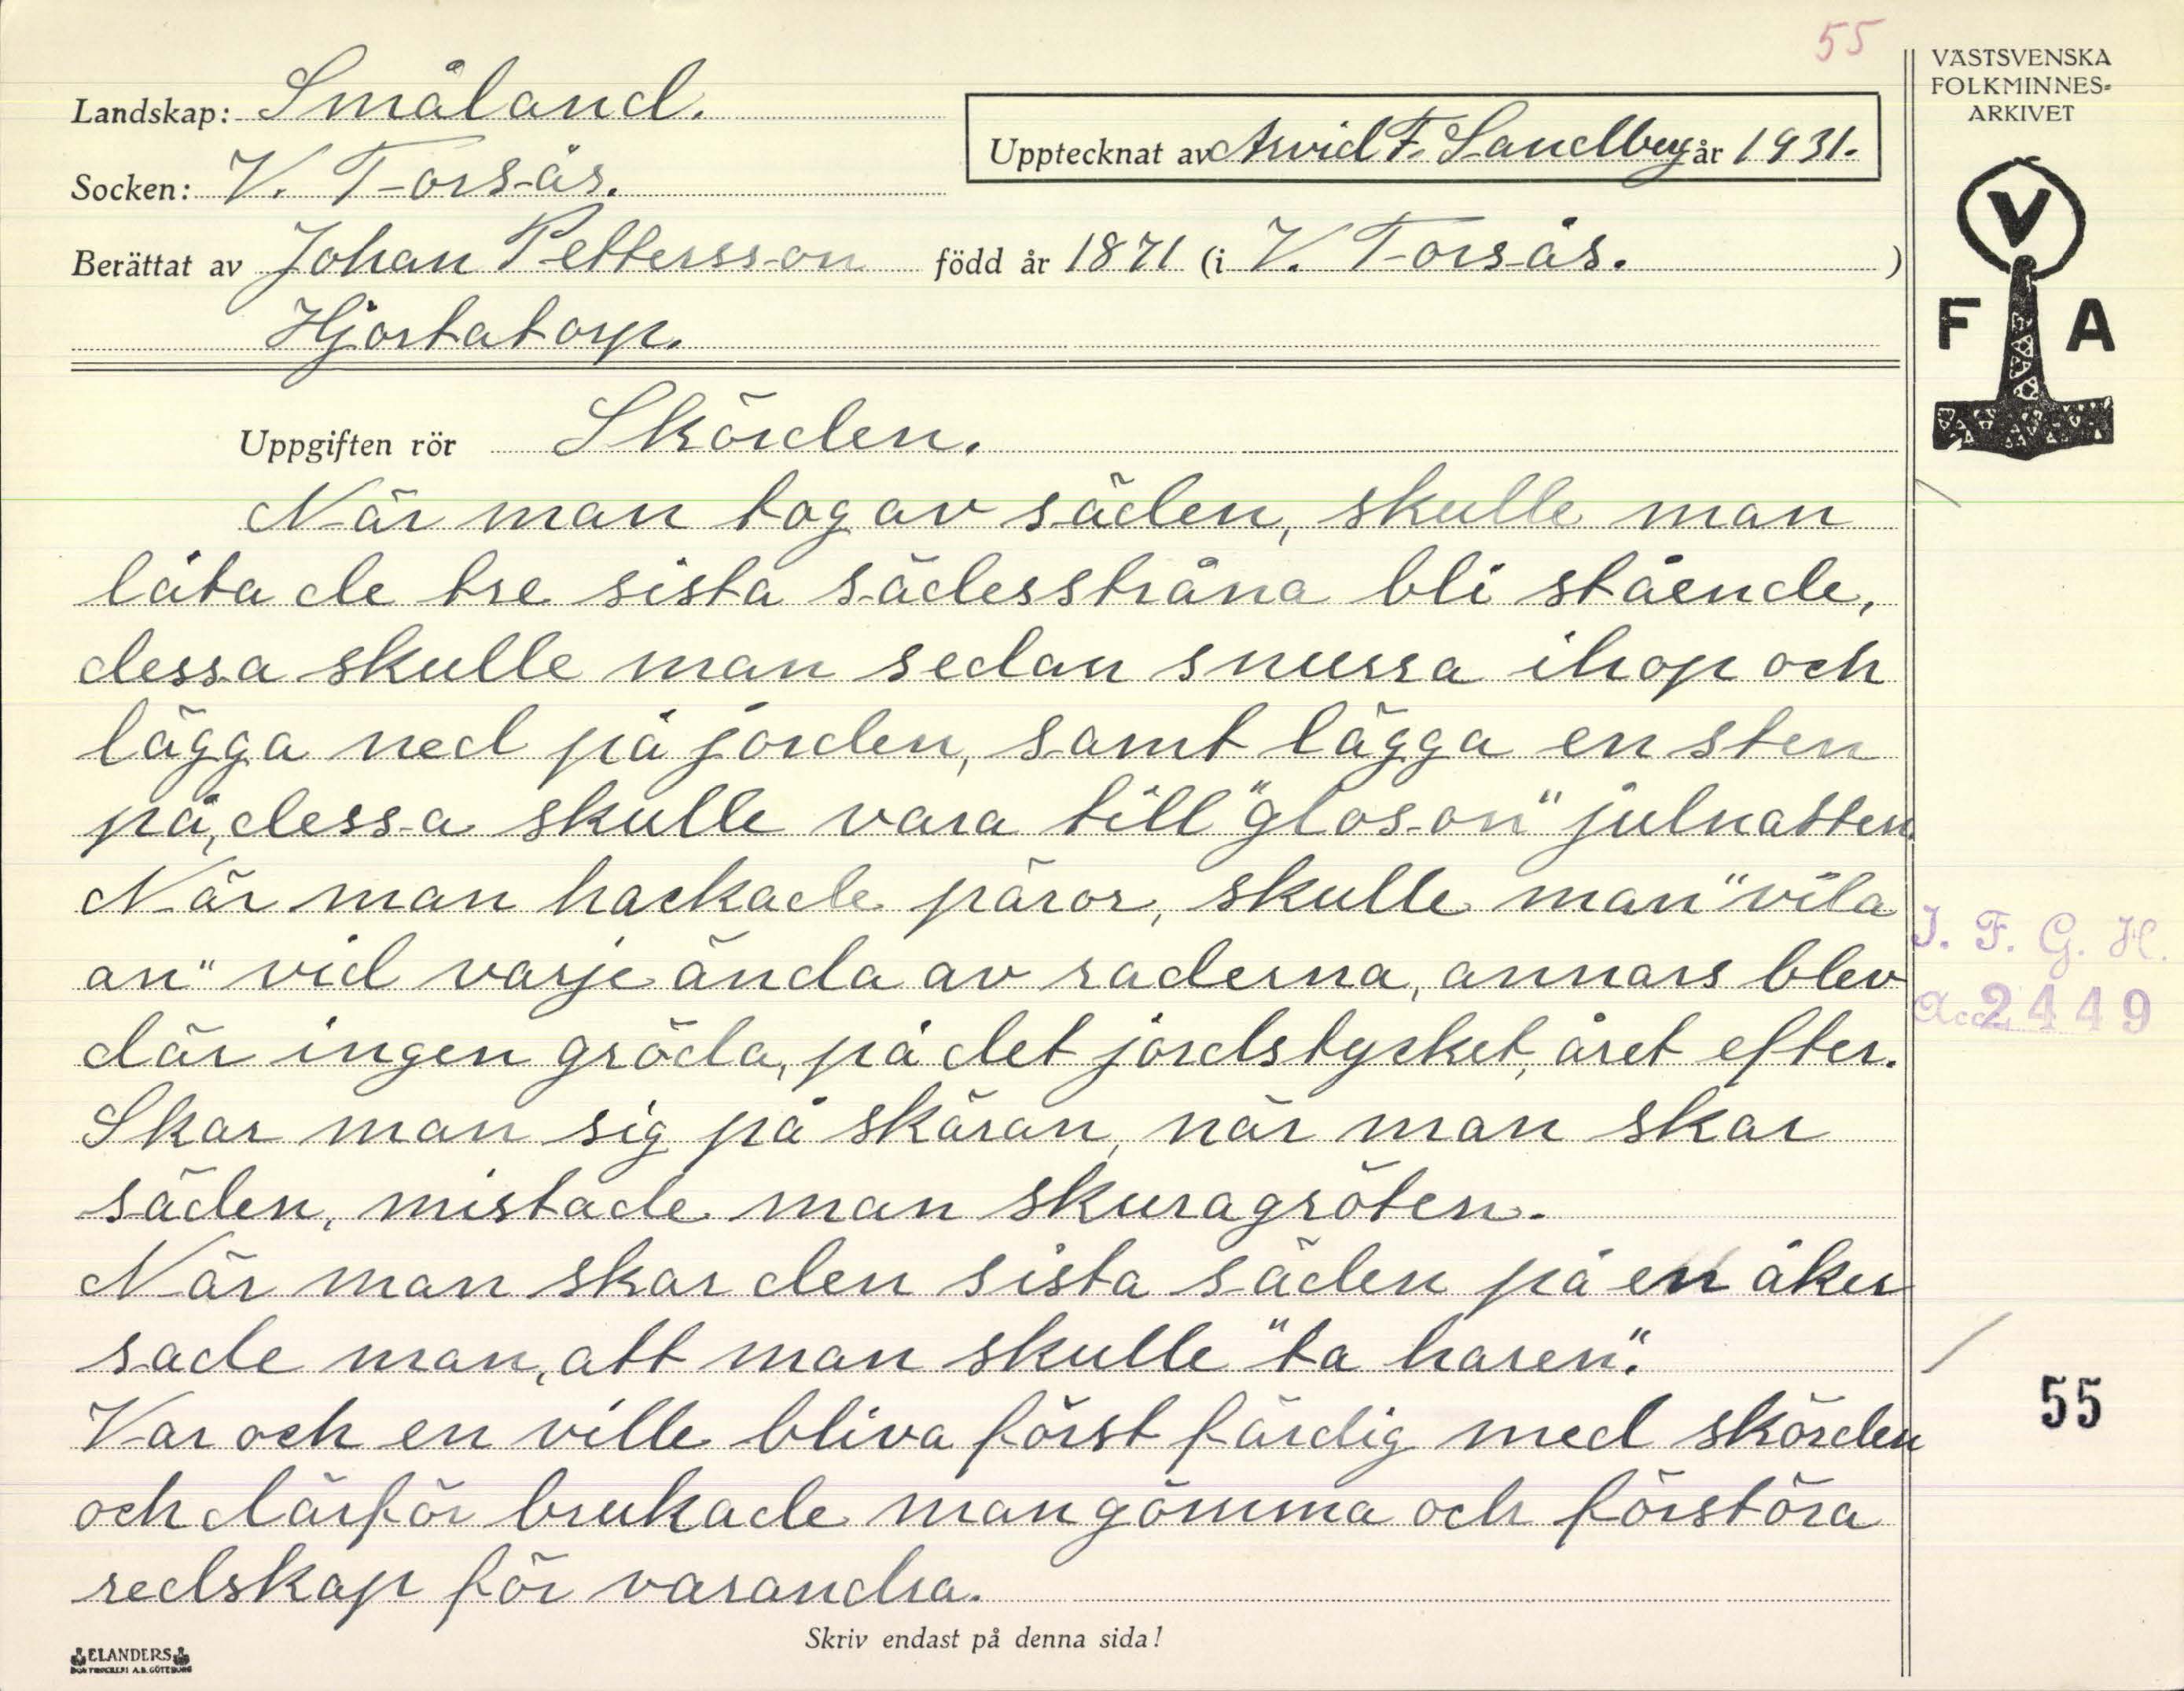 55
VÄSTSVENSKA
FOLKMINNES-
ARKIVET
Landskap: Småland.
Upptecknat av Arvid F. Sandberg år 1931.
Socken: V. Torsås.
Berättat av Johan Pettersson född år 1871 (i V. Torsås. )
Hjortatorp.
V
F A
Uppgiften rör Skörden.
När man tog av säden, skulle man
låta de tre sista sädesstråna bli stående,
dessa skulle man sedan snurra ihop och
lägga ned på jorden, samt lägga en sten
på, dessa skulle vara till "gloson" julnatten.
När man hackade päror, skulle man "vila
an" vid varje ända av raderna, annars blev
där ingen gröda, på det jordstycket, året efter.
Skar man sig på skäran, när man skar
säden, mistade man skuragröten.
När man skar den sista säden på en åker
sade man, att man skulle "ta haren".
Var och en ville bliva först färdig med skörden
och därför brukade man gömma och förstöra
redskap för varandra.
I. F. G. H.
Acc. 2449
55
Skriv endast på denna sida!
ELANDERS
BOKTRYCKERI A.B. GÖTEBORG